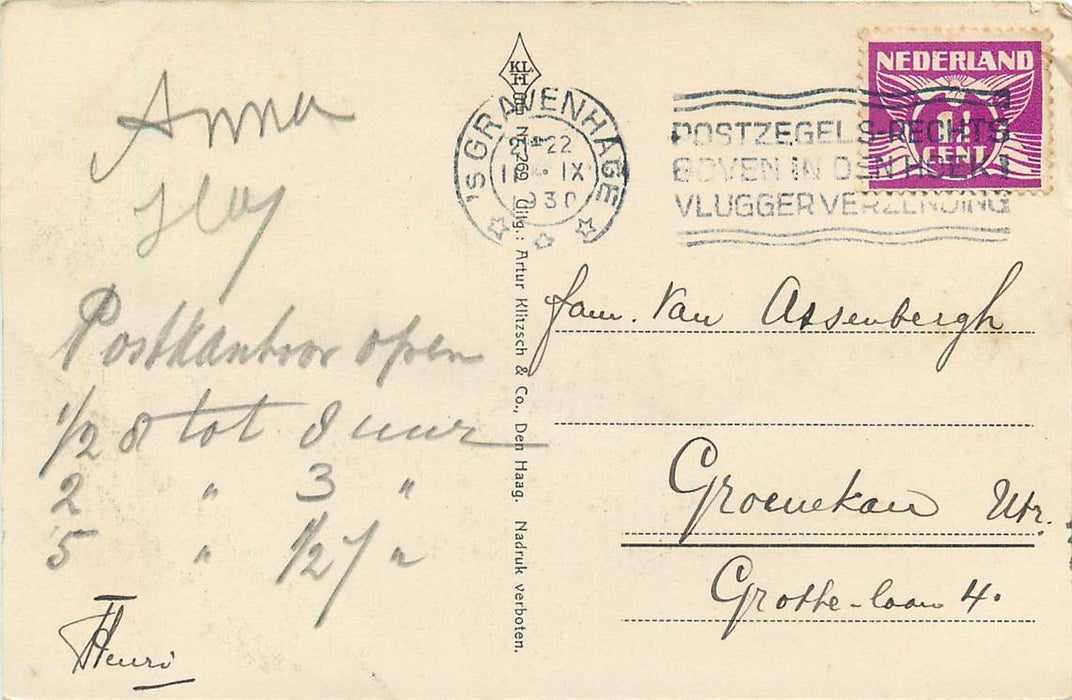 Anna
Postkantoor open
1/2 8 tot 8 uur
2 " 3 "
5 " 1/2 7 "
Henri
KL.
H
No. 269 Uitg.: Artur Klitzsch & Co., Den Haag. Nadruk verboten.
'S GRAVENHAGE
22
IX
1930
POSTZEGELS-RECHTS
BOVEN IN DEN HOEK!
VLUGGER VERZENDING
NEDERLAND
CENT
fam. Van Assenbergh
Groenekan Utr.
Grothe-laan 4.